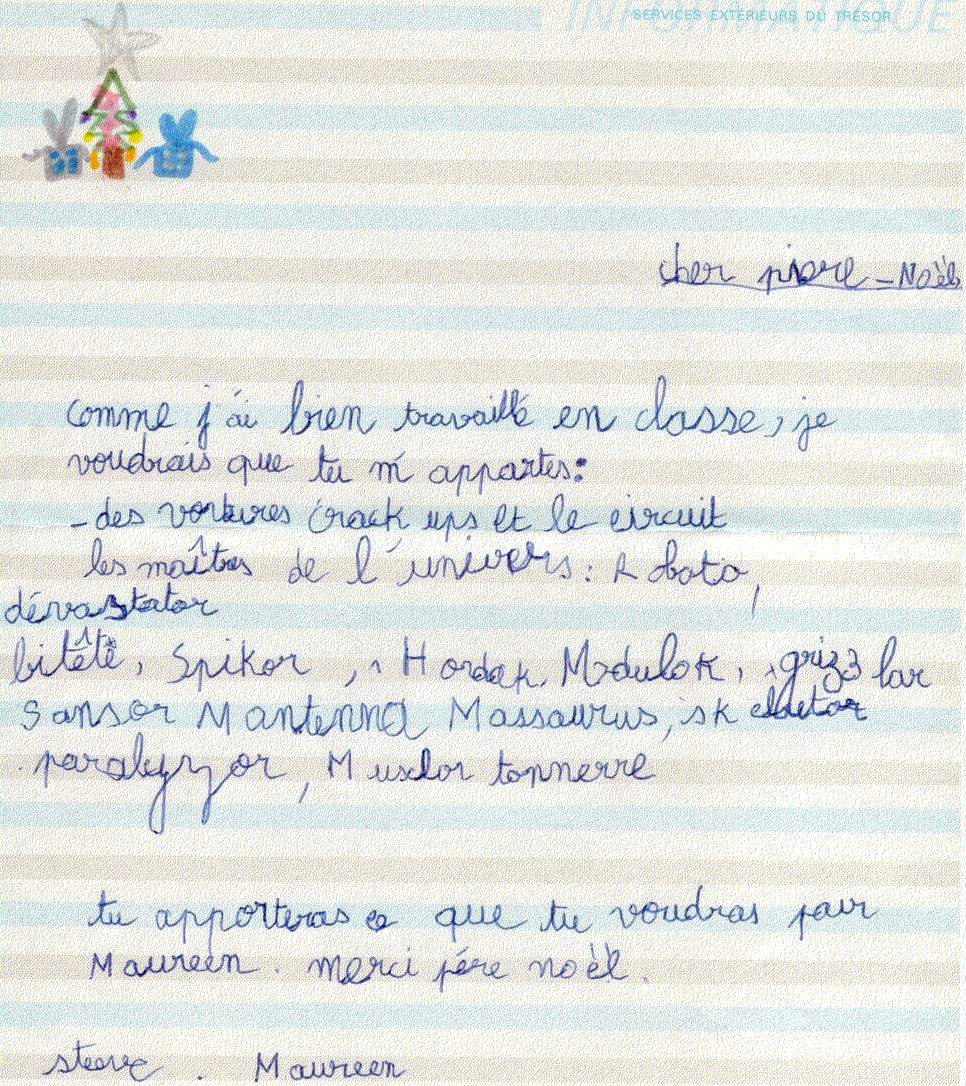 INFORMATIQUE
SERVICES EXTÉRIEURS DU TRÉSOR
cher père - Noël
comme j'ai bien travaillé en classe, je
voudrais que tu m'apportes:
- des voitures crack ups et le circuit
les maîtres de l'univers: Roboto,
dévastator
bitête, Spikor, Hordak, Modulok, grizzlor
Sansor Mantenna, Mossaurus, skeletor
paralyzor, Musclor tonnerre
tu apporteras ce que tu voudras pour
Maureen. merci père noël.
steeve. Maureen